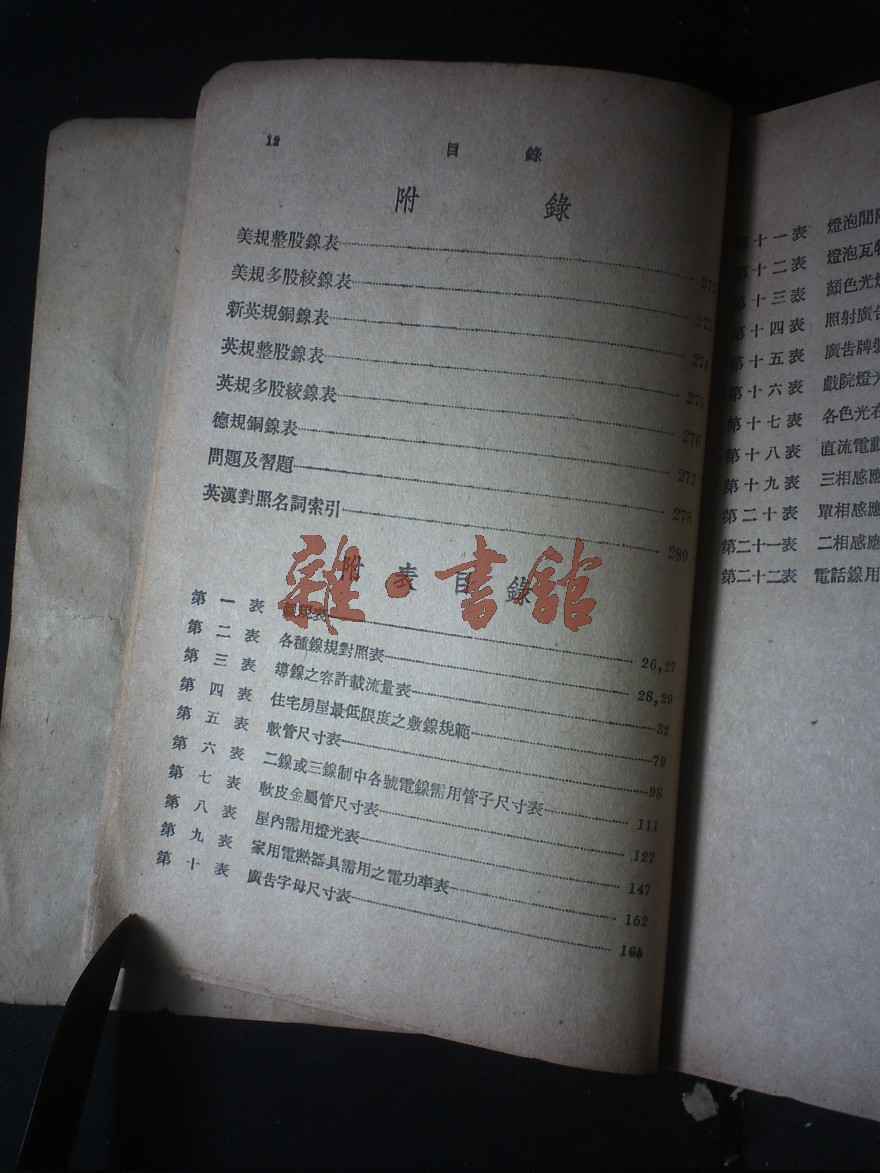 12 目 錄
附 錄
美規整股線表 272
美規多股絞線表 273
新英規銅線表 274
英規整股線表 275
英規多股絞線表 276
德規銅線表 277
問題及習題 278
英漢對照名詞索引 289
附表目錄
雜·書館
第一表 線規表 26,27
第二表 各種線規對照表 28,29
第三表 導線之容許載流量表 32
第四表 住宅房屋最低限度之敷線規範 79
第五表 軟管尺寸表 98
第六表 二線或三線制中各號電線需用管子尺寸表 111
第七表 軟皮金屬管尺寸表 127
第八表 屋內需用燈光表 147
第九表 家用電熱器具需用之電功率表 152
第十表 廣告字母尺寸表 165
第十一表 燈泡間
第十二表 燈泡瓦
第十三表 顏色光
第十四表 照射廣告
第十五表 廣告牌
第十六表 戲院燈光
第十七表 各色光在
第十八表 直流電動
第十九表 三相感應
第二十表 單相感應
第二十一表 二相感應
第二十二表 電話線用